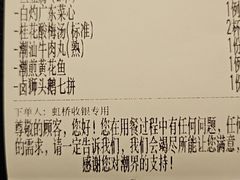 -白灼广东菜心 1例
-桂花酸梅汤(标准) 2
-潮汕牛肉丸(熟) 1
-潮煎黄花鱼 1
-卤狮头鹅七拼 1
下单人: 虹桥收银专用
尊敬的顾客，您好！您在用餐过程中有任何问题，任
的需求，请一定告诉我们，我们会竭尽所能让您满意，
感谢您对潮界的支持！